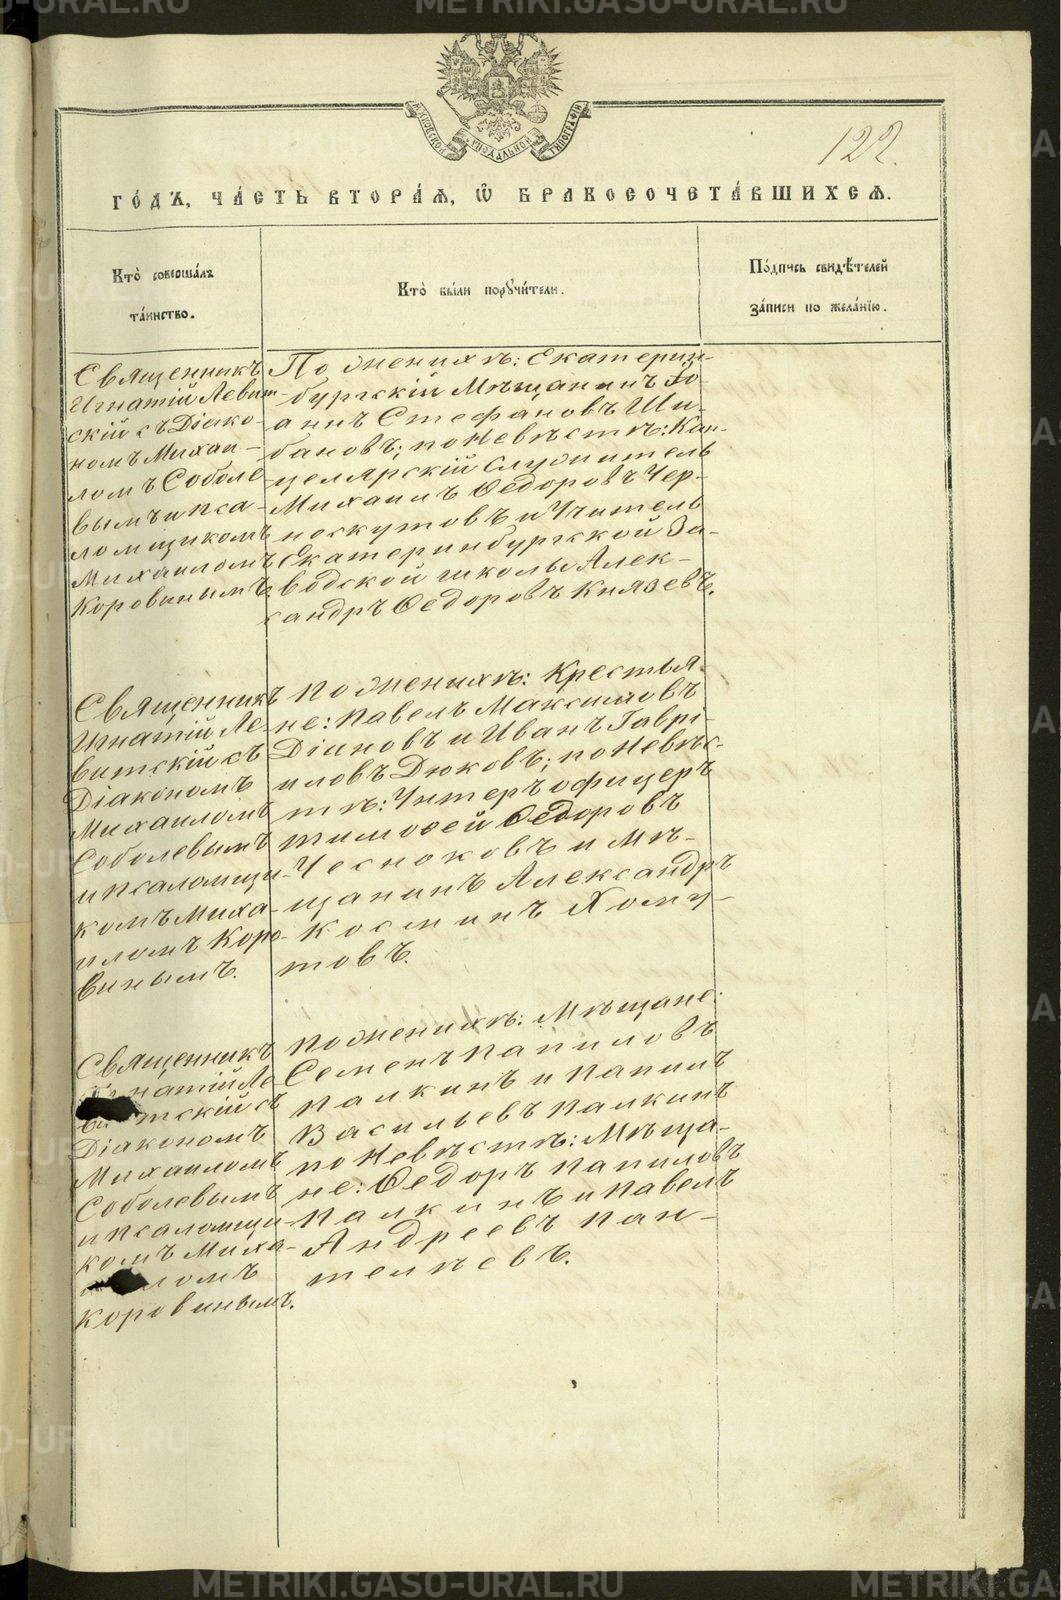 METRIKI.GASO-URAL.RU
МОСКОВСКОЙ СѴНОДАЛЬНОЙ ТИПОГРАФІИ
122.
ГО́ДЪ, ЧА́СТЬ ВТОРА́Я, Ѿ БРАКОСОЧЕТА́ВШИХСЯ.
Кто̀ соверша́лъ
та́инство.
Кто̀ бы́ли порꙋчи́тели.
По́дпись свидѣ́телей
за́писи по жела́нію.
Священникъ
Игнатій Левит-
скій съ Діако-
номъ Михаи-
ломъ Соболе-
вымъ и пса-
ломщикомъ
Михаиломъ
Коровинымъ.
По женихѣ: Екатерин-
бургскій Мѣщанинъ Іо-
аннъ Стефановъ Ши-
бановъ; по Невѣстѣ: Кан-
целярскій Служитель
Михаилъ Ѳедоровъ Чер-
носкутовъ и Учитель
Екатеринбургской За-
водской школы Алек-
сандръ Ѳедоровъ Князевъ.
Священникъ
Игнатій Ле-
витскій съ
Діакономъ
Михаиломъ
Соболевымъ
и псаломщи-
комъ Миха-
иломъ Коро-
винымъ.
По женихѣ: Крестья-
не: Павелъ Максимовъ
Діановъ и Иванъ Гаврі-
иловъ Дюковъ; по Невѣс-
тѣ: Унтеръ офицеръ
Тимоѳей Ѳедоровъ
Чесноковъ и Мѣ-
щанинъ Александръ
Косминъ Хому-
товъ.
Священникъ
Игнатій Ле-
витскій съ
Діакономъ
Михаиломъ
Соболевымъ
и псаломщи-
комъ Миха-
иломъ
Коровинымъ.
По женихѣ: Мѣщане:
Семенъ Папиловъ
Палкинъ и Папилъ
Васильевъ Палкинъ
по Невѣстѣ: Мѣща-
не: Ѳедоръ Папиловъ
Палкинъ и Павелъ
Андреевъ Пан-
телѣевъ.